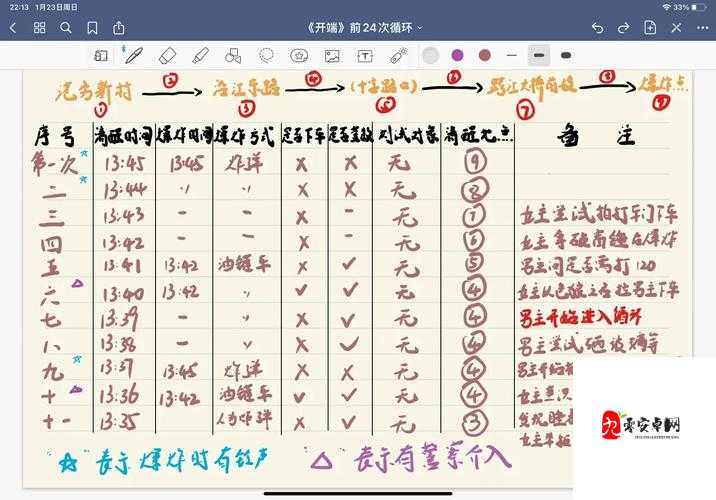 22:13 1月23日周日
33%
《开端》前24次循环
港务新村 ② 沿江东路 ④ (十字路口) ⑥ 跨江大桥前段 ⑧ 爆炸点
① ③ ⑤ ⑦ ⑨
序号 清醒时间 爆炸时间 爆炸方式 是否下车 是否 对话对象 清醒地点 备注
第一次 ☆ 13:45 13:45 炸弹 × × 无 ⑨
二 ☆ 13:44 〃 〃 × × 无 ⑧
三 13:43 - - × - 无 ⑦ 女主尝试拍打车门下车
四 13:42 - - × - 无 ⑥ 女主 后爆炸
五 13:41 13:42 油罐车 × ✓ 无 ⑤ 男主问是否需打120
六 △ 13:40 13:42 〃 ✓ ✓ 无 ④ 女主 男主下车
七 13:39 - 〃 × ✓ 无 ④ 男主开始进入循环
八 13:38 - 〃 × ✓ 无 ④ 男主尝试砸玻璃等
九 ☆ 13:37 13:45 炸弹 × × 无 ④ 男主开始
十 △ 13:36 13:42 油罐车 ✓ ✓ 无 ④ 女主意识
十一 13:35 炸弹 × ✓ 无 ③ 发现
女主
☆ 表示爆炸时有铃声 △ 表示有警察介入
零安卓网